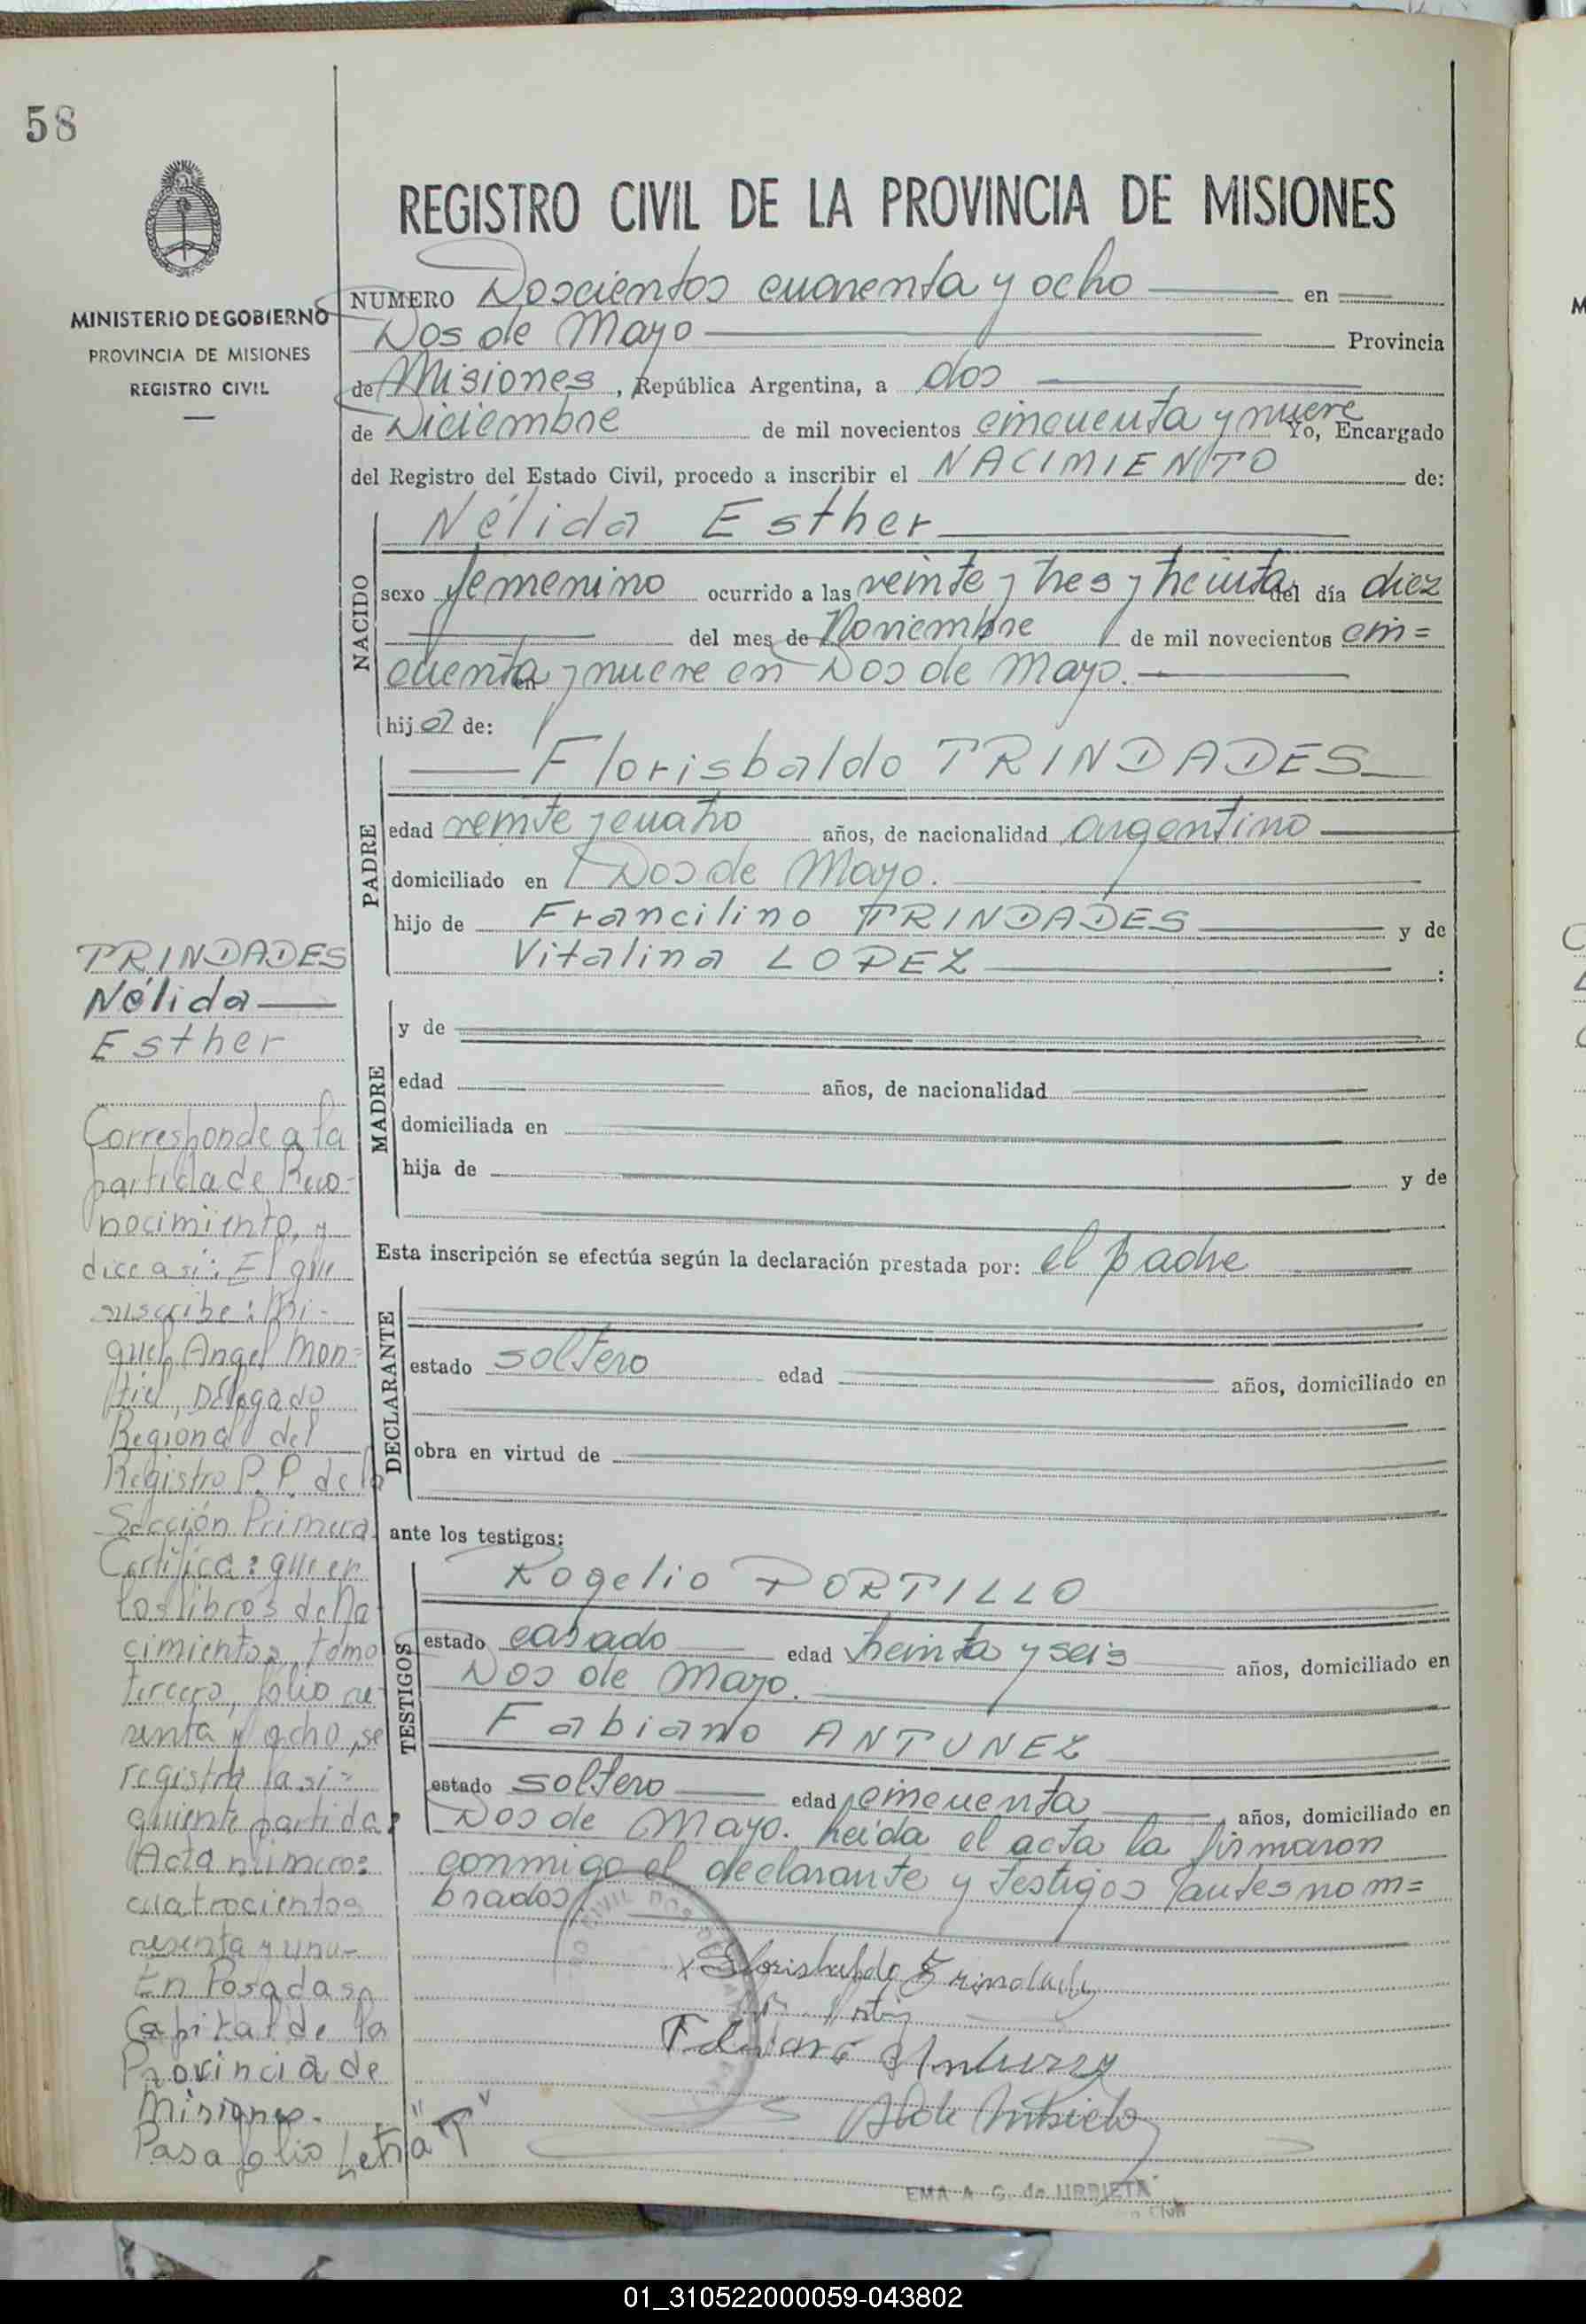 58
MINISTERIO DE GOBIERNO
PROVINCIA DE MISIONES
REGISTRO CIVIL
REGISTRO CIVIL DE LA PROVINCIA DE MISIONES
NUMERO Doscientos cuarenta y ocho en
Dos de Mayo Provincia
de Misiones, República Argentina, a dos
de Diciembre de mil novecientos cincuenta y nueve Yo, Encargado
del Registro del Estado Civil, procedo a inscribir el NACIMIENTO de:
NACIDO
Nélida Esther
sexo femenino ocurrido a las veinte y tres y treinta del día diez
del mes de Noviembre de mil novecientos cin=
cuenta y nueve en Dos de Mayo.
en
hija de:
PADRE
Florisbaldo TRINDADES
edad veinte y cuatro años, de nacionalidad argentino
domiciliado en Dos de Mayo.
hijo de Francilino TRINDADES y de
Vitalina LOPEZ :
MADRE
y de
edad años, de nacionalidad
domiciliada en
hija de y de
Esta inscripción se efectúa según la declaración prestada por: el padre
DECLARANTE
estado soltero edad años, domiciliado en
obra en virtud de
ante los testigos:
TESTIGOS
Rogelio PORTILLO
estado casado edad treinta y seis años, domiciliado en
Dos de Mayo.
Fabiano ANTUNEZ
estado soltero edad cincuenta años, domiciliado en
Dos de Mayo. Leída el acta la firmaron
conmigo el declarante y testigos antes nom=
brados
CIVIL DOS DE
Florisbaldo Trindade
EMA A. G. de URRIETA
TRINDADES
Nélida
Esther
Corresponde a la
partida de Reco-
nocimiento, y
dice así: El que
suscribe: Mi-
guel Angel Mon=
tiel, Delegado
Regional del
Registro P.P. de la
Sección Primera
Certifica: que en
los libros de Na
cimientos, tomo
tercero, folio
y ocho, se
registra la si=
guiente partida:
Acta número:
cuatrocientos
y uno-
En Posadas,
Capital de la
Provincia de
Misiones.
Pasa folio Letra "T"
01_310522000059-043802